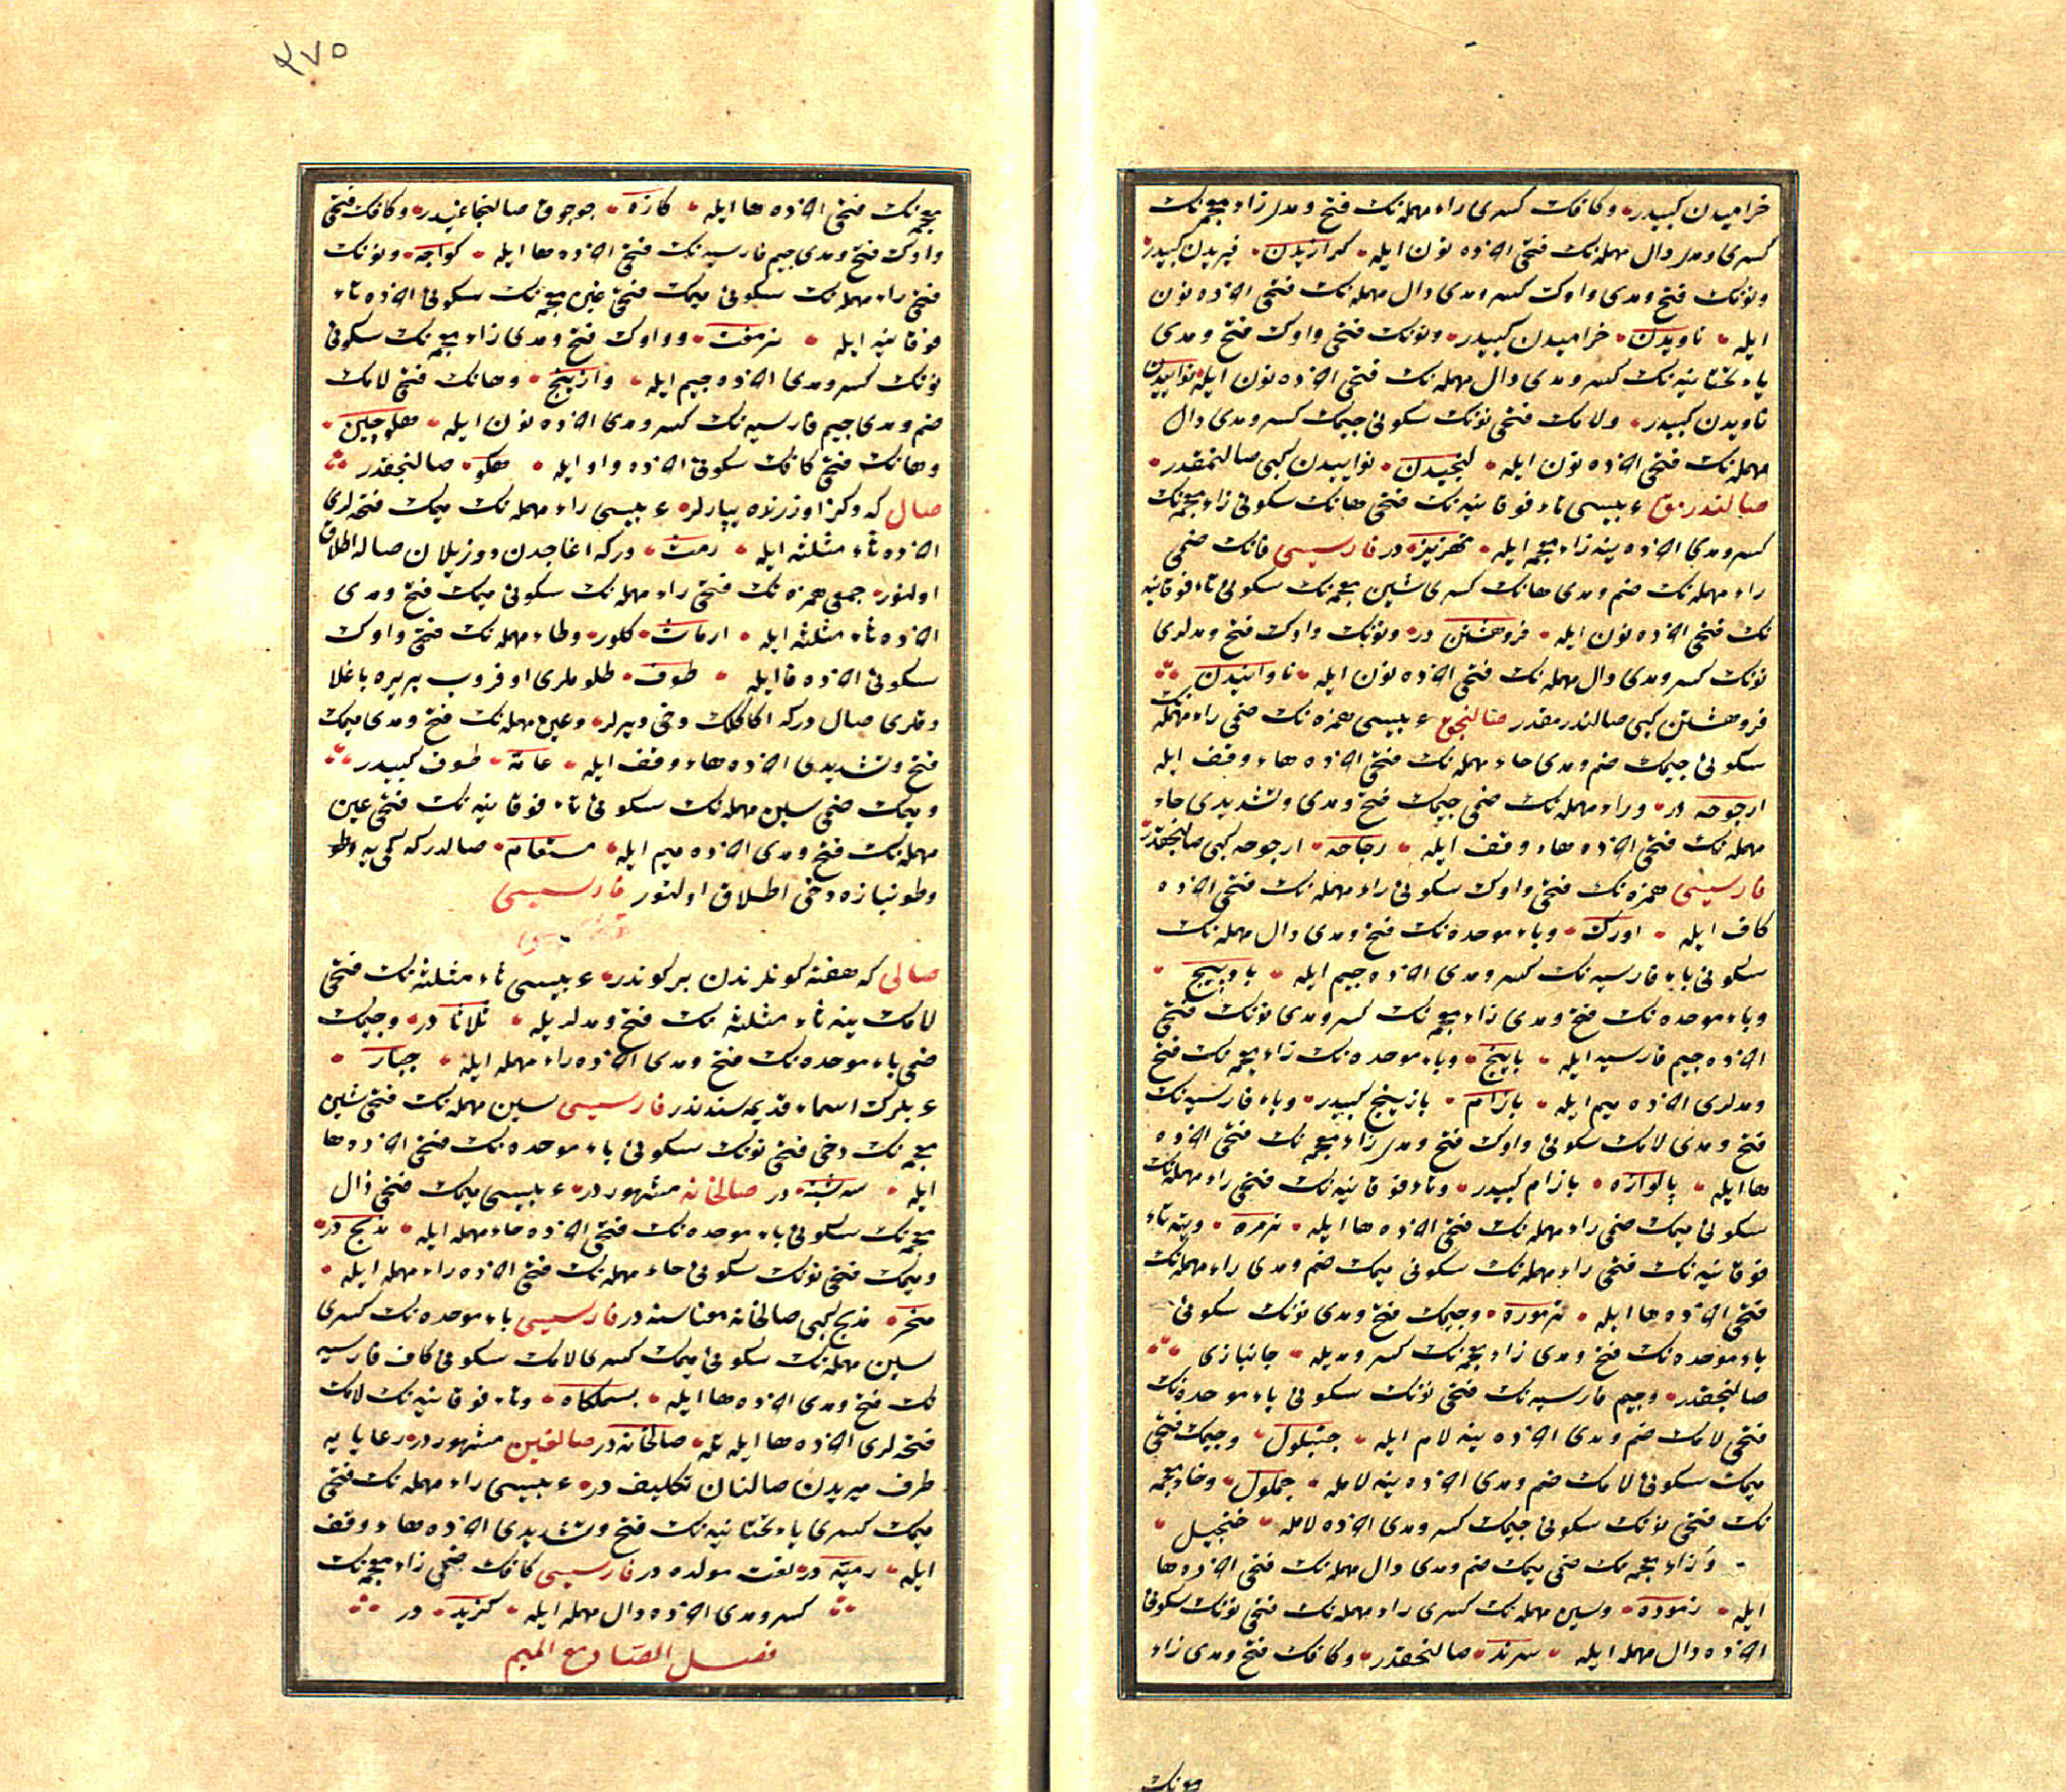 خرامیدن کبیدر وکافک کسری راء مهمله نک فتح ومدی زاء معجمه نک
کسری ومدی دال مهمله نک فتحی اخرده نون ایله کرازیدن فیریدن کبیدر
ونونک فتح ومدی واوک کسر ومدی دال مهمله نک فتحی اخرده نون
ایله ناویدن خرامیدن کبیدر ونونک فتحی واوک فتح ومدی
یاء تحتانیه نک کسر ومدی دال مهمله نک فتحی اخرده نون ایله نواییدن
ناویدن کبیدر ولامک فتحی نونک سکونی جیمک کسر ومدی دال
مهمله نک فتحی اخرده نون ایله لنجیدن نواییدن کبی صالنمقدر
صالندرمق عربیسی تاء فوقانیه نک فتحی هانک سکونی زاء معجمه نک
کسر ومدی اخرده ینه زاء معجمه ایله تهزیز در فارسیسی فانک ضمی
راء مهمله نک ضم ومدی هانک کسری شین معجمه نک سکونی تاء فوقانیه
نک فتحی اخرده نون ایله فروهشتن در ونونک واوک فتح ومدلری
نونک کسر ومدی دال مهمله نک فتحی اخرده نون ایله ناوانیدن
فروهشتن کبی صالندرمقدر صالنجق عربیسی همزه نک ضمی راء مهمله نک
سکونی جیمک ضم ومدی حاء مهمله نک فتحی اخرده هاء وقف ایله
ارجوحه در وراء مهمله نک ضمی جیمک فتح ومدی وتشدیدی حاء
مهمله نک فتحی اخرده هاء وقف ایله رجاحه ارجوحه کبی صالنجقدر
فارسیسی همزه نک فتحی واوک سکونی راء مهمله نک فتحی اخرده
کاف ایله اورک وباء موحده نک فتح ومدی دال مهمله نک
سکونی باء فارسیه نک کسر ومدی اخرده جیم ایله بادپیج
وباء موحده نک فتح ومدی زاء معجمه نک کسر ومدی نونک فتحی
اخرده جیم فارسیه ایله وباء موحده نک زاء معجمه نک فتح
ومدلری اخرده میم ایله بازام بازینج کبیدر وباء فارسیه نک
فتح ومدی لامک سکونی واوک فتح ومدی زاء معجمه نک فتحی اخرده
ها ایله پالوازه بازام کبیدر وتاء فوقانیه نک فتحی راء مهمله نک
سکونی میمک ضمی راء مهمله نک فتحی اخرده ها ایله ترمره وینه تاء
فوقانیه نک فتحی راء مهمله نک سکونی میمک ضم ومدی راء مهمله نک
فتحی اخرده ها ایله ترموره وجیمک فتح ومدی نونک سکونی
باء موحده نک فتح ومدی زاء معجمه نک کسر ومدیله جانبازی
صالنجقدر وجیم فارسیه نک فتحی نونک سکونی باء موحده نک
فتحی لامک ضم ومدی اخرده ینه لام ایله چنبلول وجیمک فتحی
میمک سکونی لامک ضم ومدی اخرده ینه لامله جملول وخاء معجمه
نک فتحی نونک سکونی جیمک کسر ومدی اخرده لامله خنجیل
وزاء معجمه نک ضمی میمک ضم ومدی دال مهمله نک فتحی اخرده ها
ایله زموده وسین مهمله نک کسری راء مهمله نک فتحی نونک سکونی
اخرده دال مهمله ایله سرند صالنجقدر وکافک فتح ومدی زاء
معجمه نک
٢٧٥
معجمه نک فتحی اخرده ها ایله کازه جوجوق صالنجاغیدر وکافک فتحی
واوک فتح ومدی جیم فارسیه نک فتحی اخرده ها ایله کواچه ونونک
فتحی راء مهمله نک سکونی میمک فتحی غین معجمه نک سکونی اخرده تاء
فوقانیه ایله نرمغت وواوک فتح ومدی زاء معجمه نک سکونی
نونک کسر ومدی اخرده جیم ایله وازنیج وهانک فتحی لامک
ضم ومدی جیم فارسیه نک کسر ومدی اخرده نون ایله هلوچین
وهانک فتحی کافک سکونی اخرده واو ایله هکو صالنجقدر
صال که دکز اوزرنده یپارلر عربیسی راء مهمله نک میمک فتحه لری
اخرده ثاء مثلثه ایله رمث درکه اغاجدن دوزیلان صاله اطلاق
اولنور جمعی همزه نک فتحی راء مهمله نک سکونی میمک فتح ومدی
اخرده ثاء مثلثه ایله ارماث کلور وطاء مهمله نک فتحی واوک
سکونی اخرده فا ایله طوف طلوملری اوفروب بربرینه باغلا
دقلری صال درکه اکا کلک دخی دیرلر وعین مهمله نک فتح ومدی میمک
فتح وتشدیدی اخرده هاء وقف ایله عامة طوف کبیدر
ومیمک ضمی سین مهمله نک سکونی تاء فوقانیه نک فتحی عین
مهمله نک فتح ومدی اخرده میم ایله مستعام صالدرکه کمی یه
وطونبازه دخی اطلاق اولنور فارسیسی
صالی که هفته کونلرندن بر کوندر عربیسی ثاء مثلثه نک فتحی
لامک ینه ثاء مثلثه نک فتح ومدلریله ثلاثا در وجیمک
ضمی باء موحده نک فتح ومدی اخرده راء مهمله ایله جبار
عربلرک اسماء قدیمه سندندر فارسیسی سین مهمله نک فتحی شین
معجمه نک دخی فتحی نونک سکونی باء موحده نک فتحی اخرده ها
ایله سه شنبه در صالخانه مشهوردر عربیسی میمک فتحی ذال
معجمه نک سکونی باء موحده نک فتحی اخرده حاء مهمله ایله مذبح در
ومیمک فتحی نونک سکونی حاء مهمله نک فتحی اخرده راء مهمله ایله
منحر مذبح کبی صالخانه معناسنه در فارسیسی باء موحده نک کسری
سین مهمله نک سکونی میمک کسری لامک سکونی کاف فارسیه
نک فتح ومدی اخرده ها ایله بسملکاه وتاء فوقانیه نک لامک
فتحه لری اخرده ها ایله تله صالخانه در صالغین مشهوردر رعایایه
طرف میریدن صالنان تکلیف در عربیسی راء مهمله نک فتحی
میمک کسری یاء تحتانیه نک فتح وتشدیدی اخرده هاء وقف
ایله رمیه در لغت مولده در فارسیسی کافک ضمی زاء معجمه نک
کسر ومدی اخرده دال مهمله ایله کزید در
فصل الصاد مع المیم